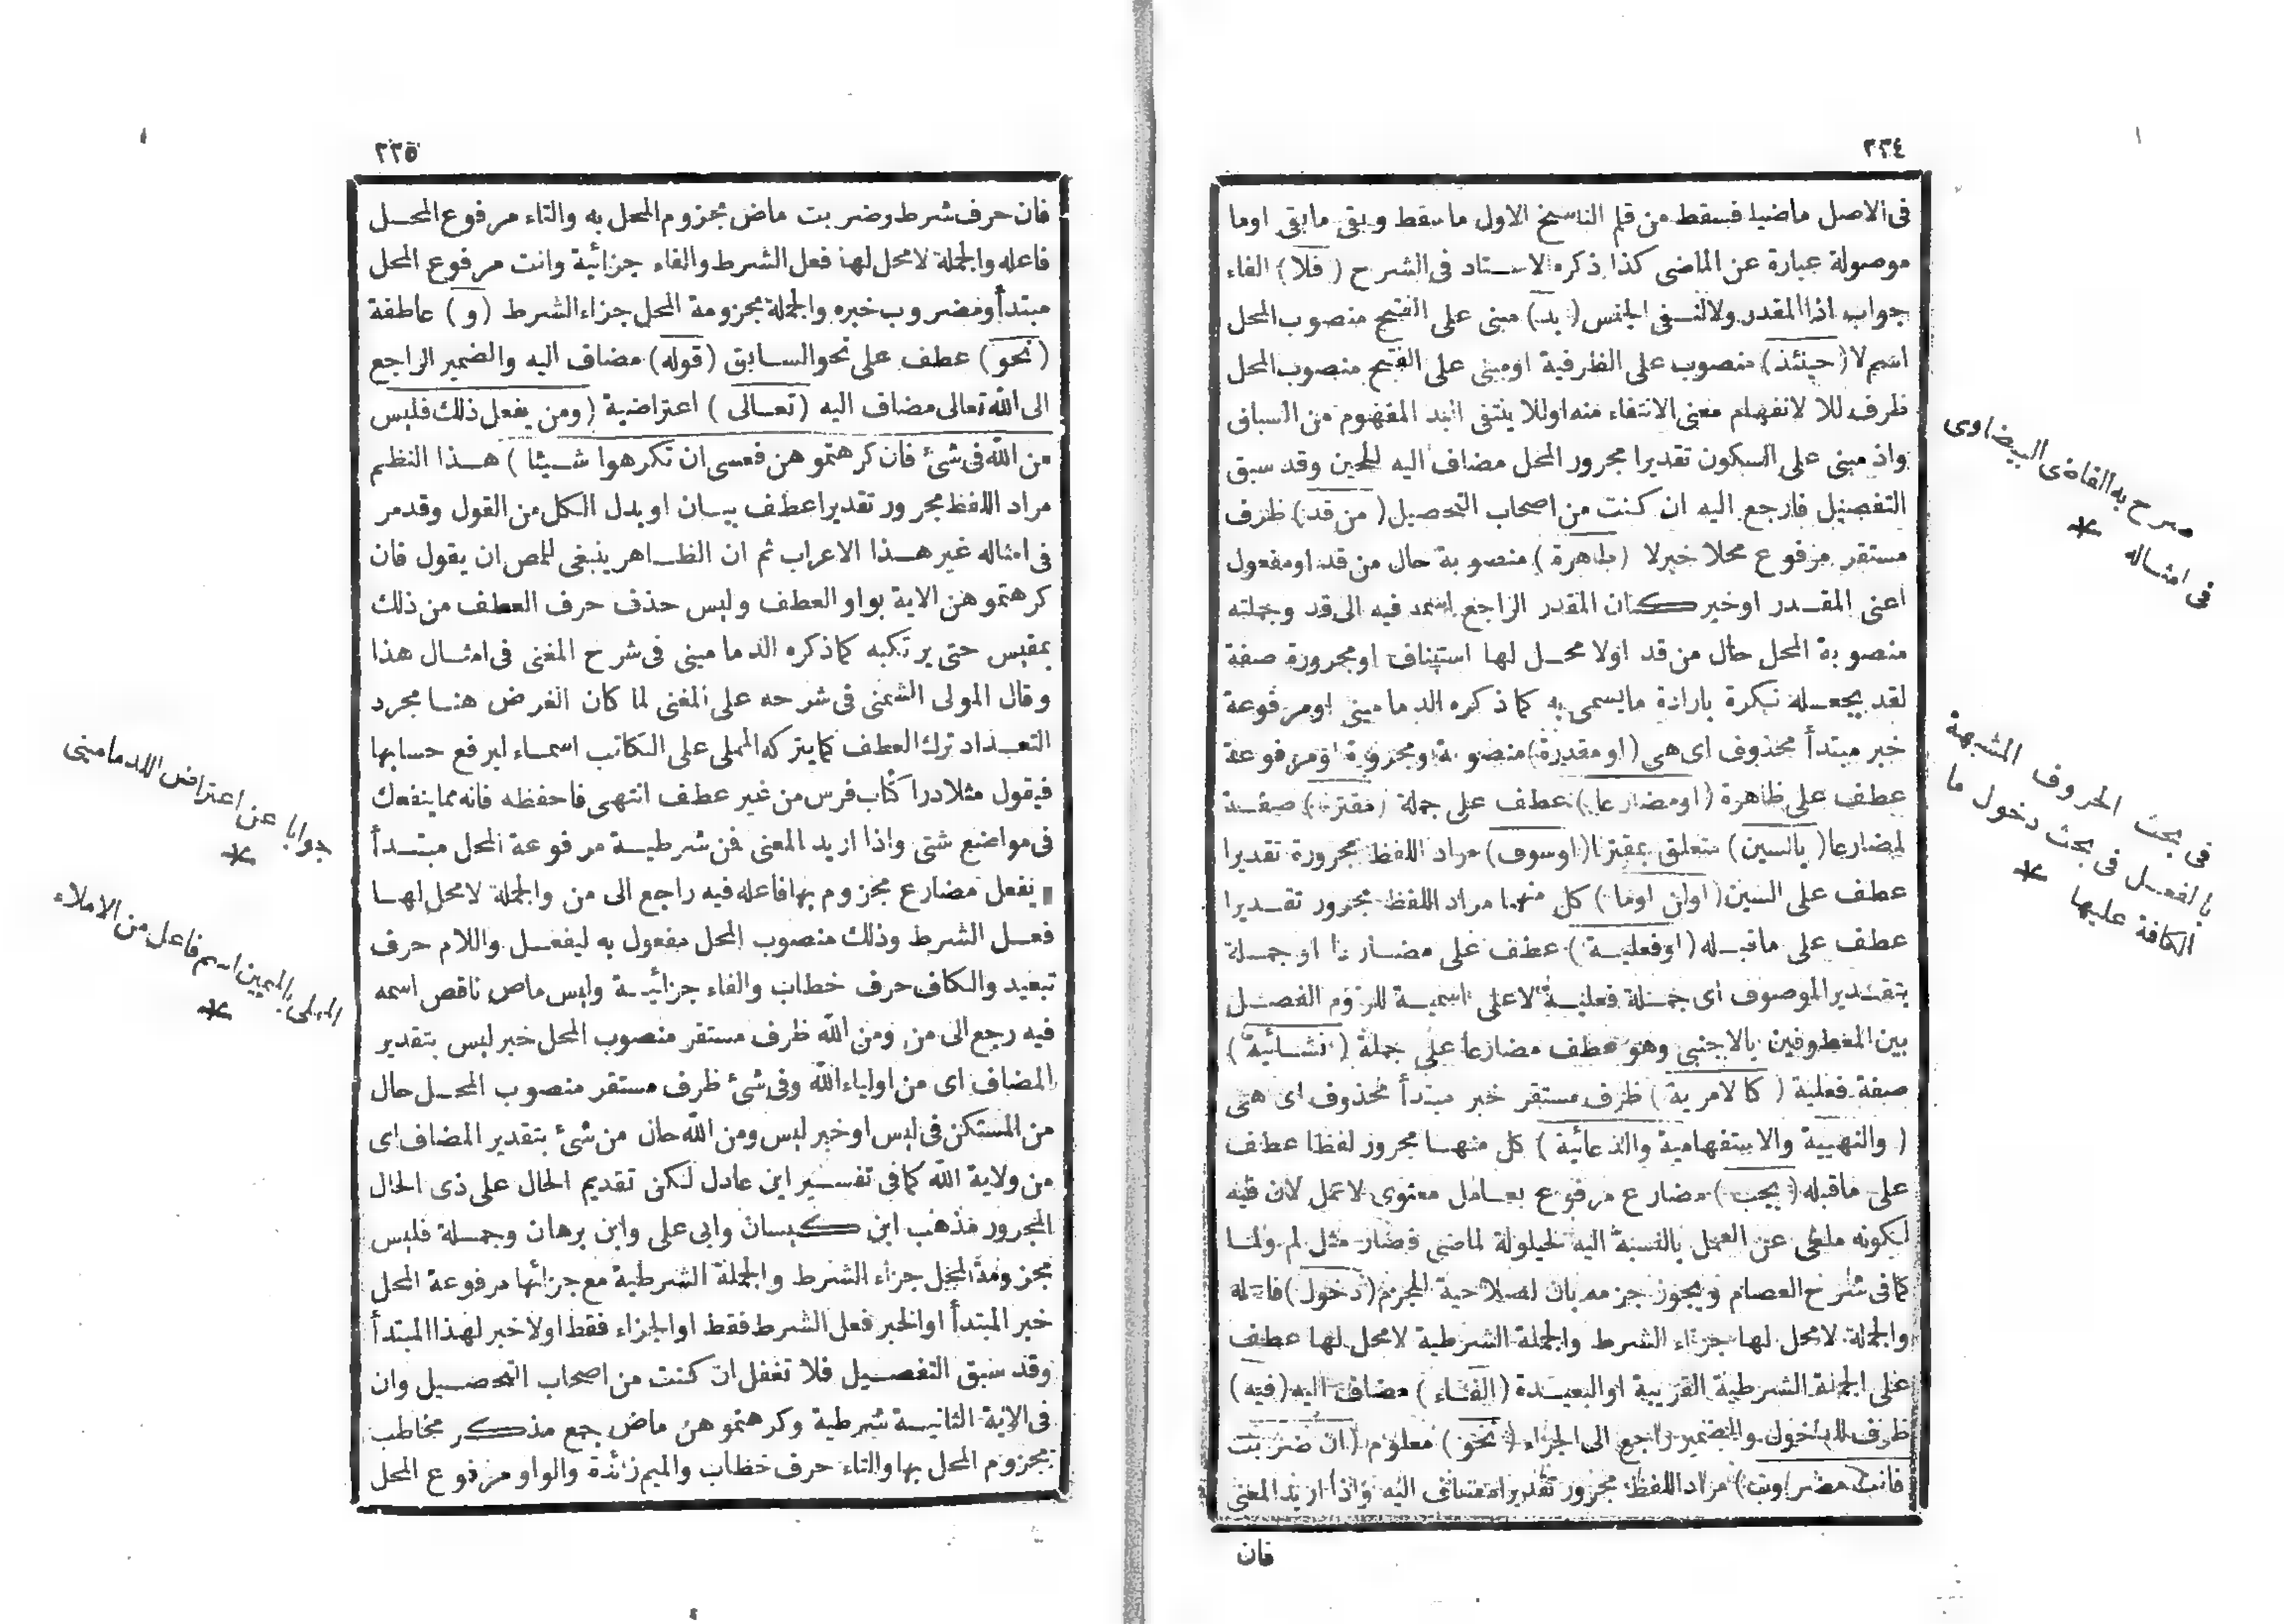 ٢٣٤
فى الاصل ماضيا فسقط من قلم الناسخ الاول ماسقط وبقى مابقى اوما
موصولة عبارة عن الماضى كذا ذكره الاستاد فى الشرح ( فلا ) الفاء
جواب اذا المقدر ولا لنفى الجنس ( بد ) مبنى على الفتح منصوب المحل
اسم لا ( حينئذ ) منصوب على الظرفية اومبنى على الفتح منصوب المحل
ظرف للا لانفهام معنى الانتفاء منه اوللا ينتفى البد المفهوم من السباق
واذ مبنى على السكون تقديرا مجرور المحل مضاف اليه للحين وقد سبق
التفصيل فارجع اليه ان كنت من اصحاب التحصيل ( من قد ) ظرف
مستقر مرفوع محلا خبرلا ( ظاهرة ) منصوبة حال من قد اومفعول
اعنى المقدر اوخبر كان المقدر الراجع اسمه فيه الى قد وجملته
منصوبة المحل حال من قد اولا محل لها استيناف اومجرورة صفة
لقد بجعله نكرة بارادة مايسمى به كما ذكره الدمامينى اومرفوعة
خبر مبتدأ محذوف اى هى ( اومقدرة ) منصوبة اومجرورة اومرفوعة
عطف على ظاهرة ( اومضارعا ) عطف على جملة ( مقترنا ) صفة
لمضارعا ( بالسين ) متعلق بمقترنا ( اوسوف ) مراد اللفظ مجرورة تقديرا
عطف على السين ( اولن اوما ) كل منهما مراد اللفظ مجرور تقديرا
عطف على ماقبله ( اوفعلية ) عطف على مضارعا او جملة
بتقدير الموصوف اى جملة فعلية لاعلى اسمية للزوم الفصل
بين المعطوفين بالاجنبى وهو عطف مضارعا على جملة ( انشائية )
صفة فعلية ( كالامرية ) ظرف مستقر خبر مبتدأ محذوف اى هى
( والنهيية والاستفهامية والدعائية ) كل منها مجرور لفظا عطف
على ماقبله ( يجب ) مضارع مرفوع بعامل معنوى لاعمل لان فيه
لكونه ملغى عن العمل بالنسبة اليه لحيلولة لماضى فصار مثل لم ولما
كما فى شرح العصام ويجوز جزمه بان لصلاحية الجزم ( دخول ) فاعله
والجملة لامحل لها جزاء الشرط والجملة الشرطية لامحل لها عطف
على الجملة الشرطية القريبة اوالبعيدة ( الفاء ) مضاف اليه ( فيه )
ظرف للدخول والضمير راجع الى الجزاء ( نحو ) معلوم ( ان ضربت
فانت مضروب ) مراد اللفظ مجرور تقديرا مضاف اليه واذا اريد المعنى
فان
صرح به القاضى البيضاوى
فى امثاله
*
فى بحث الحروف المشبهة
بالفعل فى بحث دخول ما
الكافة عليها
*
٢٣٥
فان حرف شرط وضربت ماض مجزوم المحل به والتاء مرفوع المحل
فاعله والجملة لامحل لها فعل الشرط والفاء جزائية وانت مرفوع المحل
مبتدأ ومضروب خبره والجملة مجزومة المحل جزاء الشرط ( و ) عاطفة
( نحو ) عطف على نحو السابق ( قوله ) مضاف اليه والضمير الراجع
الى الله تعالى مضاف اليه ( تعالى ) اعتراضية ( ومن يفعل ذلك فليس
من الله فى شئ فان كرهتموهن فعسى ان تكرهوا شيئا ) هذا النظم
مراد اللفظ مجرور تقديرا عطف بيان اوبدل الكل من القول وقدمر
فى امثاله غير هذا الاعراب ثم ان الظاهر ينبغى للمص ان يقول فان
كرهتموهن الاية بواو العطف وليس حذف حرف العطف من ذلك
بمقيس حتى يرتكبه كما ذكره الدمامينى فى شرح المغنى فى امثال هذا
وقال المولى الشمنى فى شرحه على المغنى لما كان الغرض هنا مجرد
التعداد ترك العطف كما يتركه المملى على الكاتب اسماء ليرفع حسابها
فيقول مثلا دراكتاب فرس من غير عطف انتهى فاحفظه فانه مما ينفعك
فى مواضع شتى واذا اريد المعنى فمن شرطية مرفوعة المحل مبتدأ
يفعل مضارع مجزوم بها فاعله فيه راجع الى من والجملة لامحل لها
فعل الشرط وذلك منصوب المحل مفعول به ليفعل واللام حرف
تبعيد والكاف حرف خطاب والفاء جزائية وليس ماض ناقص اسمه
فيه رجع الى من ومن الله ظرف مستقر منصوب المحل خبر ليس بتقدير
المضاف اى من اولياء الله وفى شئ ظرف مستقر منصوب المحل حال
من المستكن فى ليس اوخبر ليس ومن الله حال من شئ بتقدير المضاف اى
من ولاية الله كما فى تفسير ابن عادل لكن تقديم الحال على ذى الحال
المجرور مذهب ابن كيسان وابى على وابن برهان وجملة فليس
مجزومة المحل جزاء الشرط والجملة الشرطية مع جزائها مرفوعة المحل
خبر المبتدأ اوالخبر فعل الشرط فقط اوالجزاء فقط اولا خبر لهذا المبتدأ
وقد سبق التفصيل فلا تغفل ان كنت من اصحاب التحصيل وان
فى الاية الثانية شرطية وكرهتموهن ماض جمع مذكر مخاطب
مجزوم المحل بها والتاء حرف خطاب والميم زائدة والواو مرفوع المحل
جوابا عن اعتراض الدمامينى
*
المملى بالميمين اسم فاعل من الاملاء
*